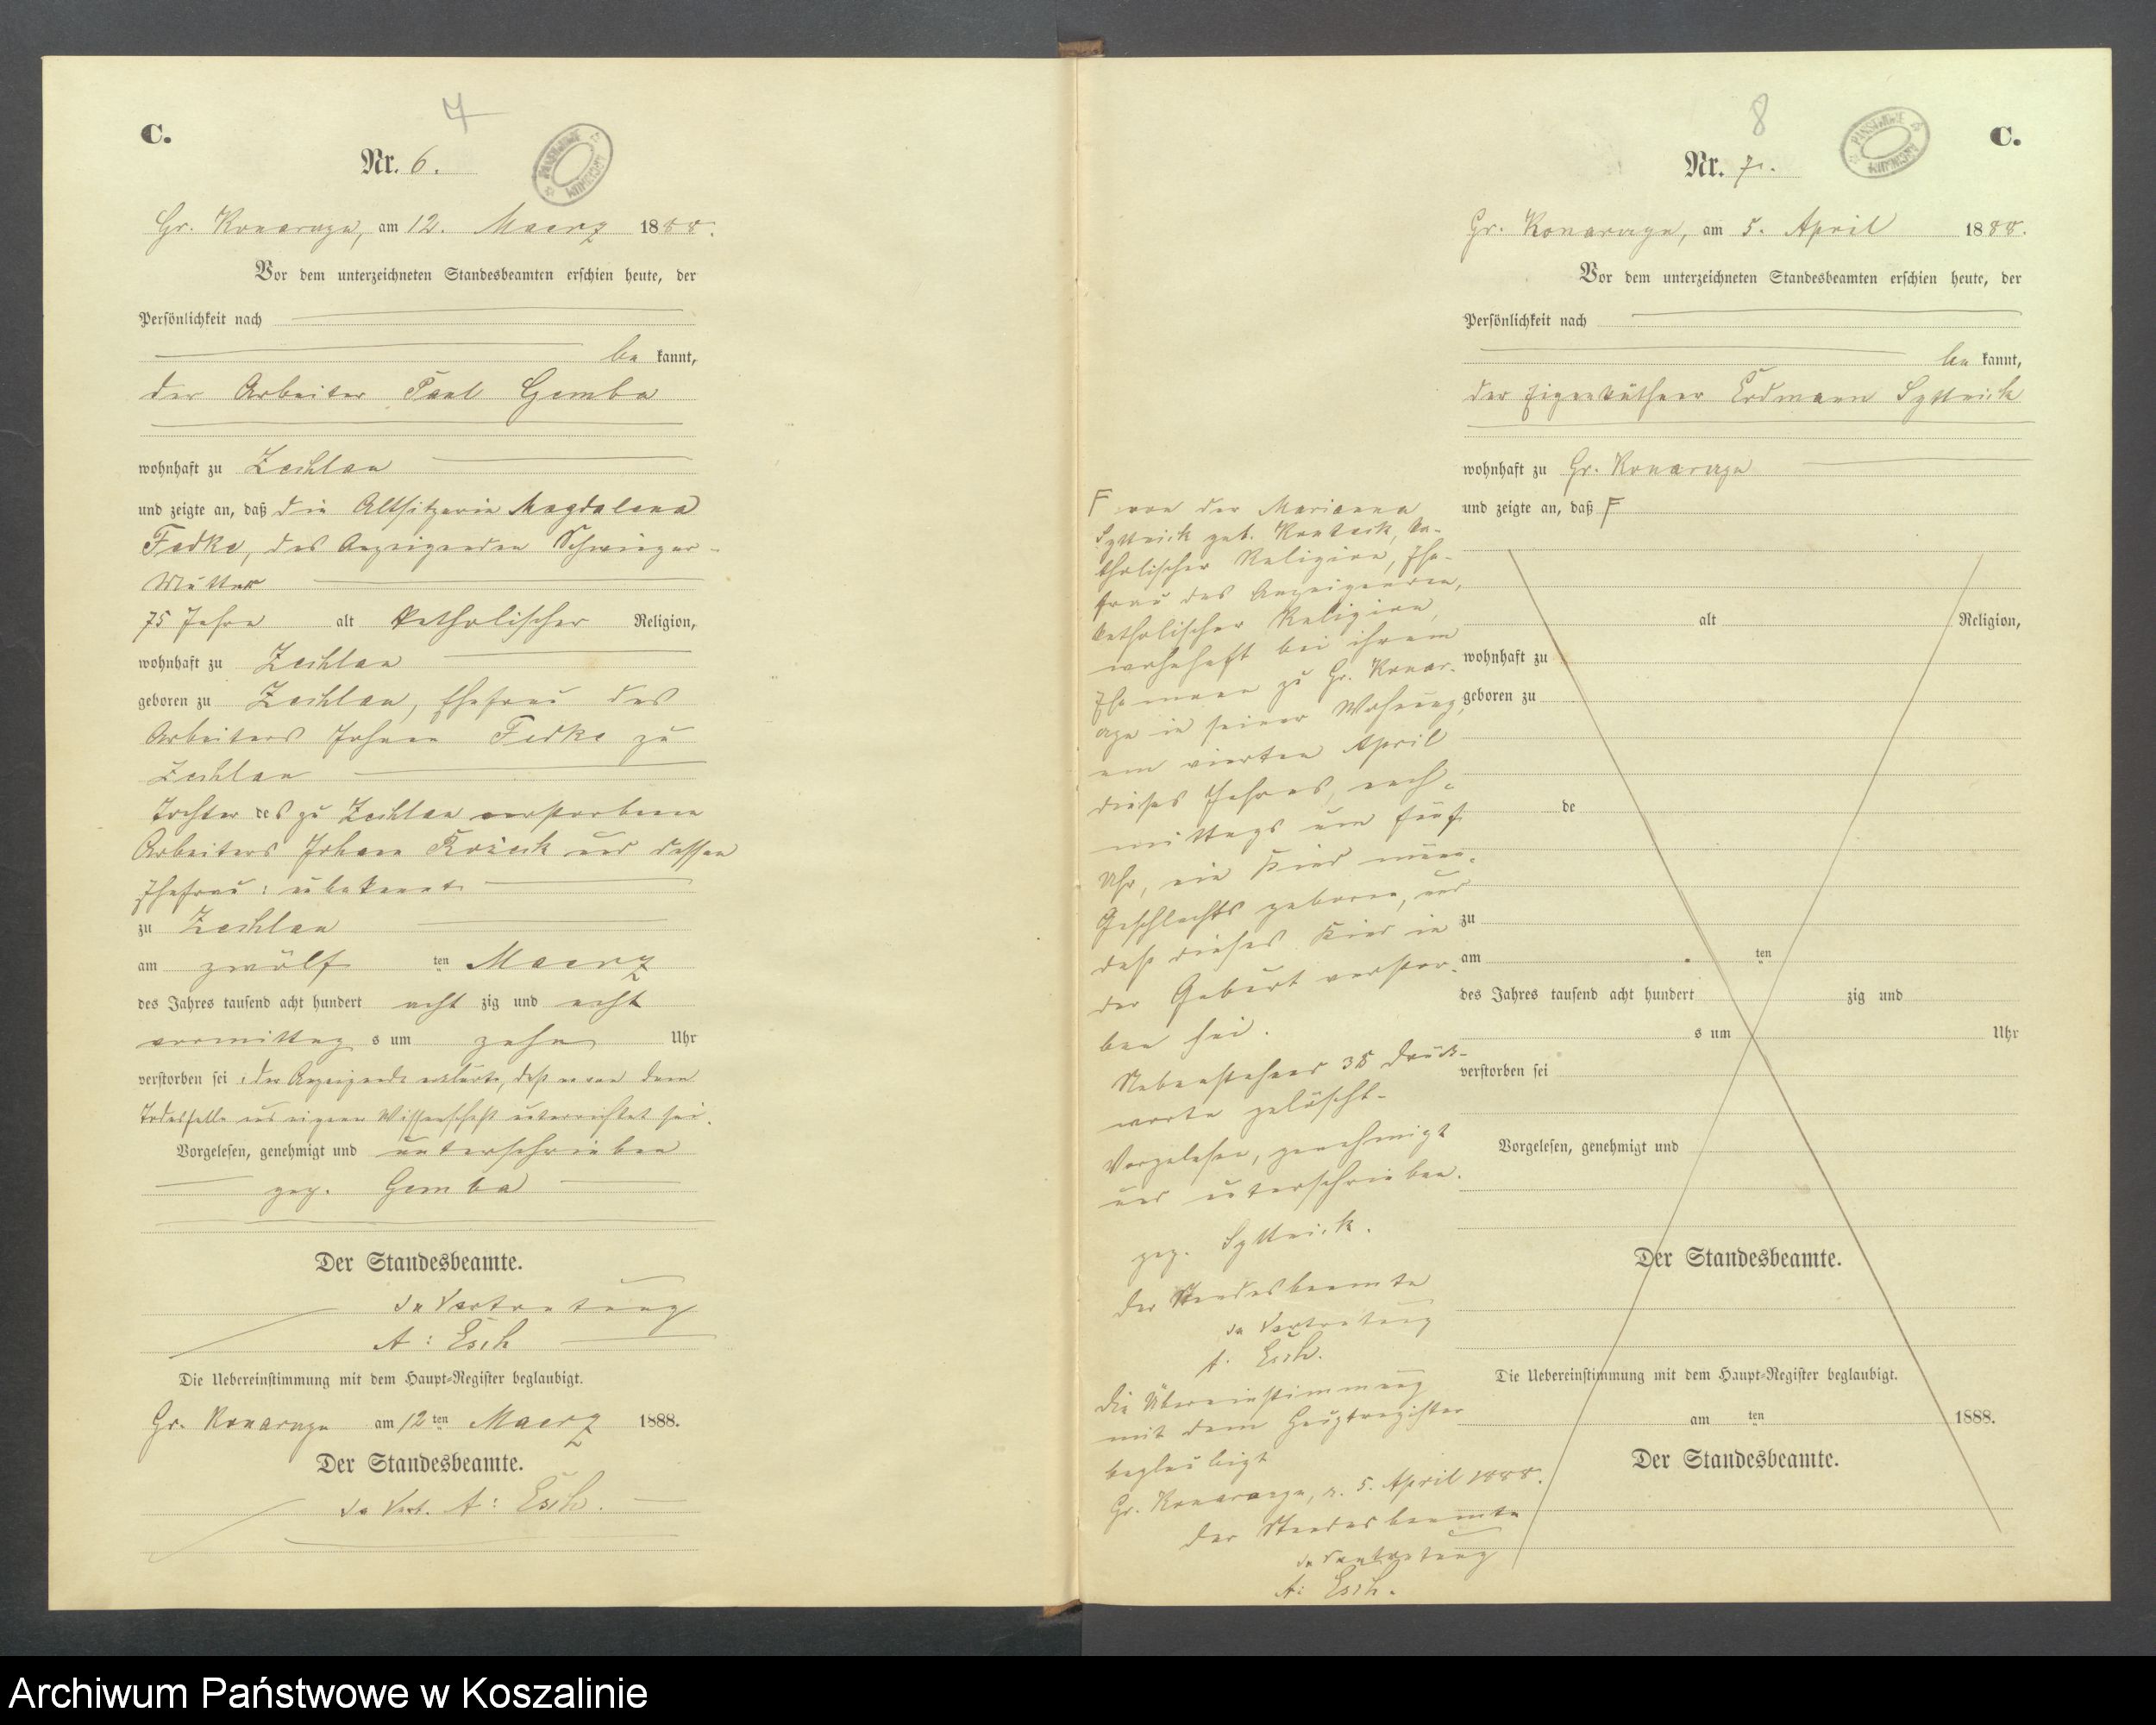 7
C.
Nr. 6.
Gr. Konarzyn, am 12. Maerz 1888.
Vor dem unterzeichneten Standesbeamten erschien heute, der
Persönlichkeit nach
be kannt,
der Arbeiter Paul Gemba
wohnhaft zu Zechlau
und zeigte an, daß die Altsitzerin Magdalena
Fedke, des Anzeigenden Schwieger-
Mutter
75 Jahre alt katholischer Religion,
wohnhaft zu Zechlau
geboren zu Zechlau, Ehefrau des
Arbeiters Johann Fedke zu
Zechlau
Tochter des zu Zechlau verstorbenen
Arbeiters Johann und dessen
Ehefrau: unbekannt
zu Zechlau
am zwölf ten Maerz
des Jahres tausend acht hundert acht zig und acht
vormittag s um zehn Uhr
verstorben sei, der Anzeigende erklärte, daß er von dem
Todesfalle aus eigener Wissenschaft unterrichtet sei.
Vorgelesen, genehmigt und unterschrieben
gez. Gemba
Der Standesbeamte.
In Vertretung
A: Esch
Die Uebereinstimmung mit dem Haupt-Register beglaubigt.
Gr. Konarzyn am 12 ten Maerz 1888.
Der Standesbeamte.
In Vert. A: Esch.
8
C.
Nr. 7.
Gr. Konarzyn, am 5. April 1888.
Vor dem unterzeichneten Standesbeamten erschien heute, der
Persönlichkeit nach
be kannt,
der Eigenkäthner Erdmann Syttnick
wohnhaft zu Gr. Konarzyn
und zeigte an, daß F
alt Religion,
wohnhaft zu
geboren zu
de
zu
am ten
des Jahres tausend acht hundert zig und
s um Uhr
verstorben sei
Vorgelesen, genehmigt und
Der Standesbeamte.
Die Uebereinstimmung mit dem Haupt-Register beglaubigt.
am ten 1888.
Der Standesbeamte.
F von der Marianna
Syttnick geb. ka-
tholischer Religion, Ehe-
frau des Anzeigenden,
katholischer Religion,
wohnhaft bei ihrem
Ehemann zu Gr. Konar-
zyn in seiner Wohnung,
am vierten April
dieses Jahres, nach-
mittags um fünf
Uhr, ein Kind männ.
Geschlechts geboren, und
daß dieses Kind in
der Geburt verstor-
ben sei.
Nebenstehend 38 Druck-
worte gelöscht-
Vorgelesen, genehmigt
und unterschrieben.
gez. Syttnick.
Der Standesbeamte
In Vertretung
A. Esch.
Die Übereinstimmung
mit dem Hauptregister
beglaubigt
Gr. Konarzyn, d. 5. April 1888.
Der Standesbeamte
In Vertretung
A: Esch.
Archiwum Państwowe w Koszalinie